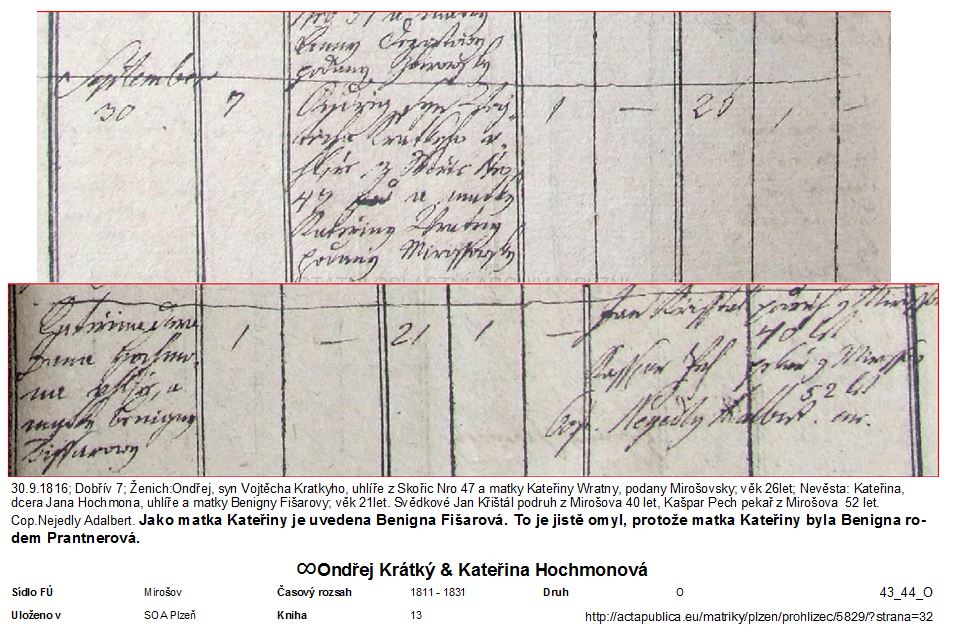 Septembr
30
7
Ondřej, syn Voj-
těcha Kratkyho u-
hlíře, z Skořic Nro
47 a matky
Kateřiny Wratny
podany Mirossowsky
1 — 26 1 —
Kateřina dcera
Jana Hochmo-
na uhlíře, a
matky Benigny
Fissarowy
1 — 21 1 —
Jan Krisstal podruh z Mirossowa
40 let
Kasspar Pech pekař z Mirossowa
52 let
Cop. Nejedly Adalbert
30.9.1816; Dobřív 7; Ženich:Ondřej, syn Vojtěcha Kratkyho, uhlíře z Skořic Nro 47 a matky Kateřiny Wratny, podany Mirošovsky; věk 26let; Nevěsta: Kateřina,
dcera Jana Hochmona, uhlíře a matky Benigny Fišarovy; věk 21let. Svědkové Jan Křištál podruh z Mirošova 40 let, Kašpar Pech pekař z Mirošova 52 let.
Cop.Nejedly Adalbert. Jako matka Kateřiny je uvedena Benigna Fišarová. To je jistě omyl, protože matka Kateřiny byla Benigna ro-
dem Prantnerová.
∞Ondřej Krátký & Kateřina Hochmonová
Sídlo FÚ Mirošov Časový rozsah 1811 - 1831 Druh O 43_44_O
Uloženo v SOA Plzeň Kniha 13 http://actapublica.eu/matriky/plzen/prohlizec/5829/?strana=32